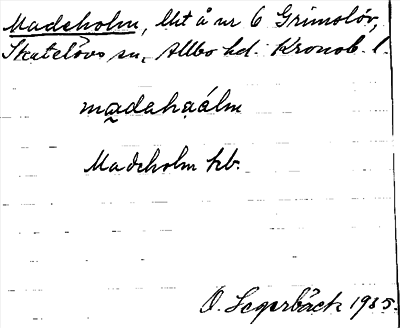 Madeholm, lht å nr 6 Grimslöv,
Skatelövs sn, Allbo hd. Kronob. l.
madahaálm
Madeholm hb.
O. Segerbäck 1935.